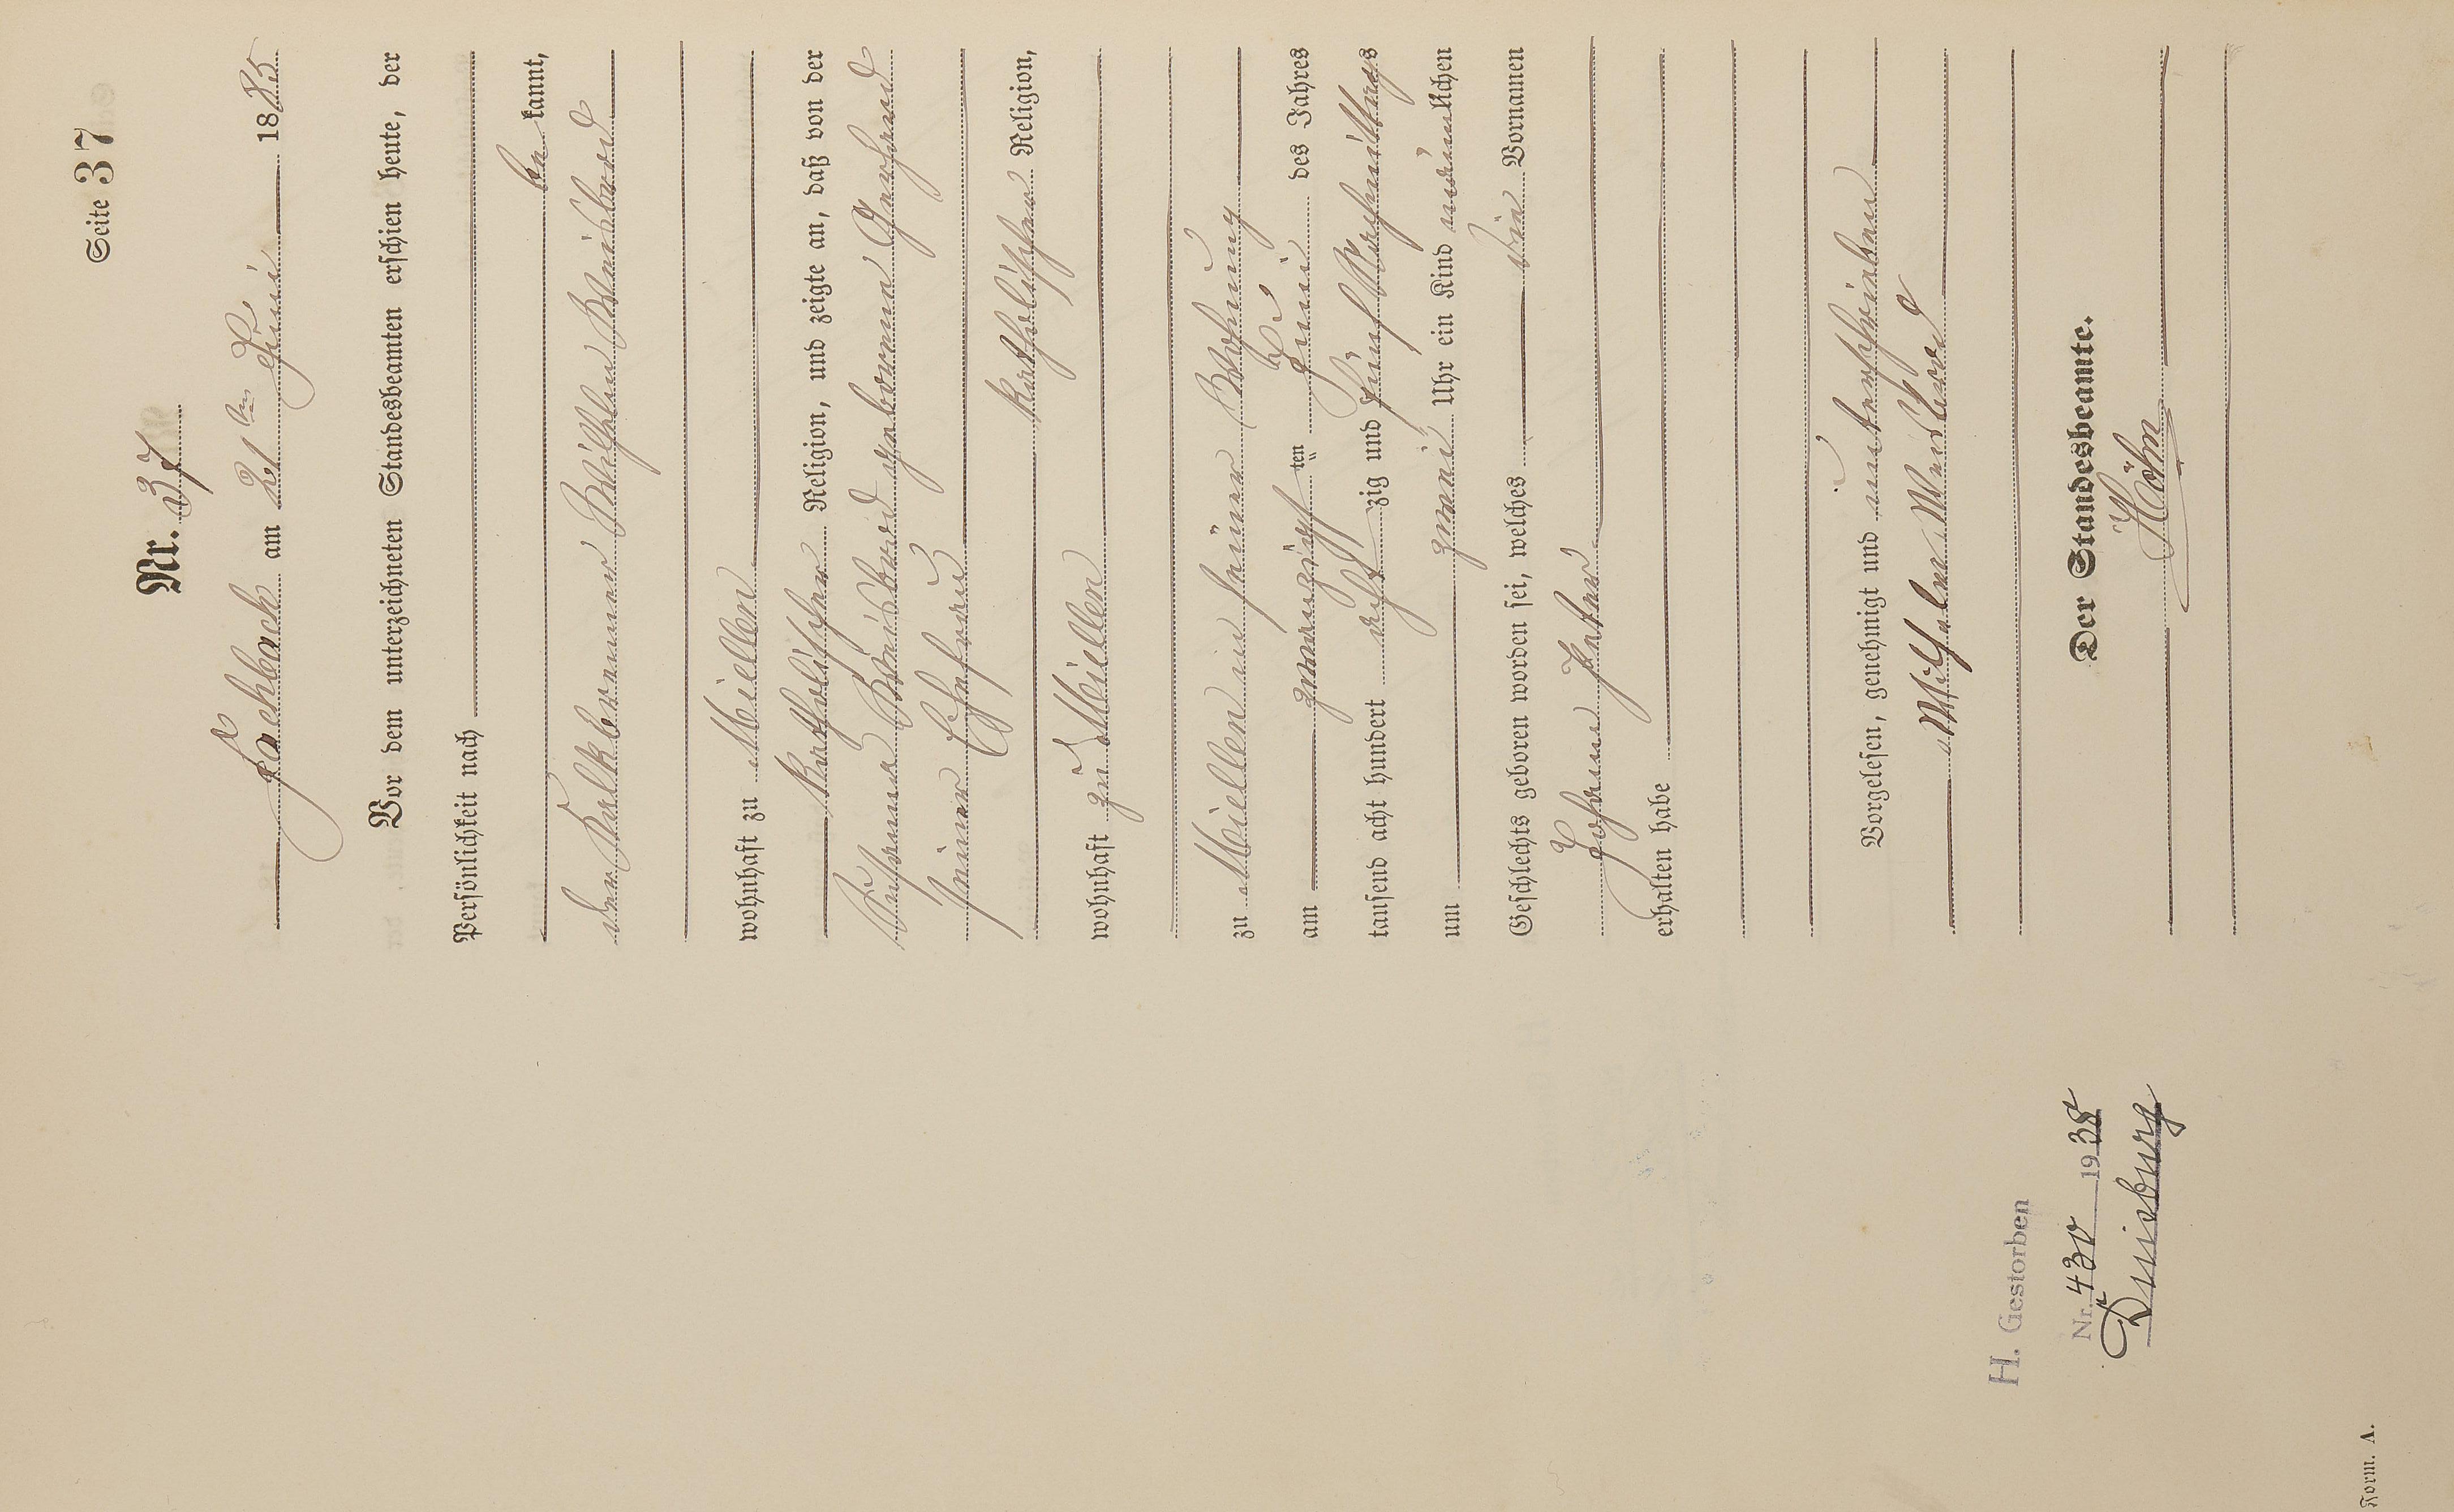 Seite 37
Nr. 37
Fachbach am 21ten Juni 1885
Vor dem unterzeichneten Standesbeamten erschien heute, der
Persönlichkeit nach
be kannt,
der Kalkbrenner Wilhelm Weisbrod
wohnhaft zu Miellen
katholischer Religion, und zeigte an, daß von der
Weisbrod geborenen
seiner Ehefrau
katholischer Religion,
wohnhaft zu Miellen
zu Miellen in seiner Wohnung
am zwanzigsten Juni des Jahres
tausend acht hundert achtzig und fünf Nachmittags
um zwei Uhr ein Kind männlichen
Geschlechts geboren worden sei, welches die Vornamen
Johann Peter
erhalten habe
Vorgelesen, genehmigt und unterschrieben
Wilhelm Weisbrod
Der Standesbeamte.
Höhn
H. Gestorben
Nr. 430 1938
Duisburg
Form. A.